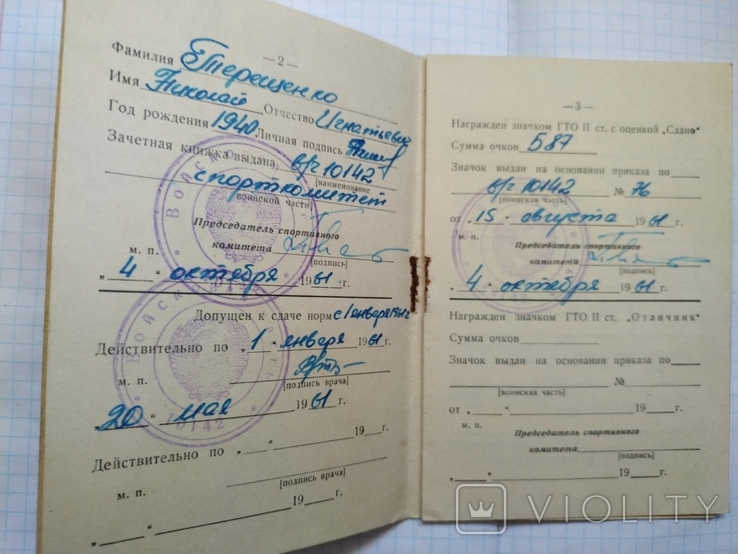 — 2 —
Фамилия Терещенко
Имя Николай Отчество Игнатьевич
Год рождения 1940 Личная подпись
Зачетная книжка выдана в/ч 10142
[наименование
спорткомитет
воинской части]
Председатель спортивного
м. п. комитета
[подпись]
„ 4 “ октября 1961 г.
Допущен к сдаче норм с 1 января 1961 г.
Действительно по „ 1 “ января 1961 г.
м. п.
[подпись врача]
„ 20 “ мая 1961 г.
Действительно по „ “ 19 г.
м. п.
[подпись врача]
„ “ 19 г.
— 3 —
Награжден значком ГТО II ст. с оценкой „Сдано“
Сумма очков 587
Значок выдан на основании приказа по
в/ч 10142 № 76
[воинская часть]
от „ 15 “ августа 1961 г.
м. п.
Председатель спортивного
комитета
[подпись]
„ 4 “ октября 1961 г.
Награжден значком ГТО II ст. „Отличник“
Сумма очков
Значок выдан на основании приказа по
№
[воинская часть]
от „ “ 19 г.
м. п.
Председатель спортивного
комитета
[подпись]
„ “ 19 г.
VIOLITY